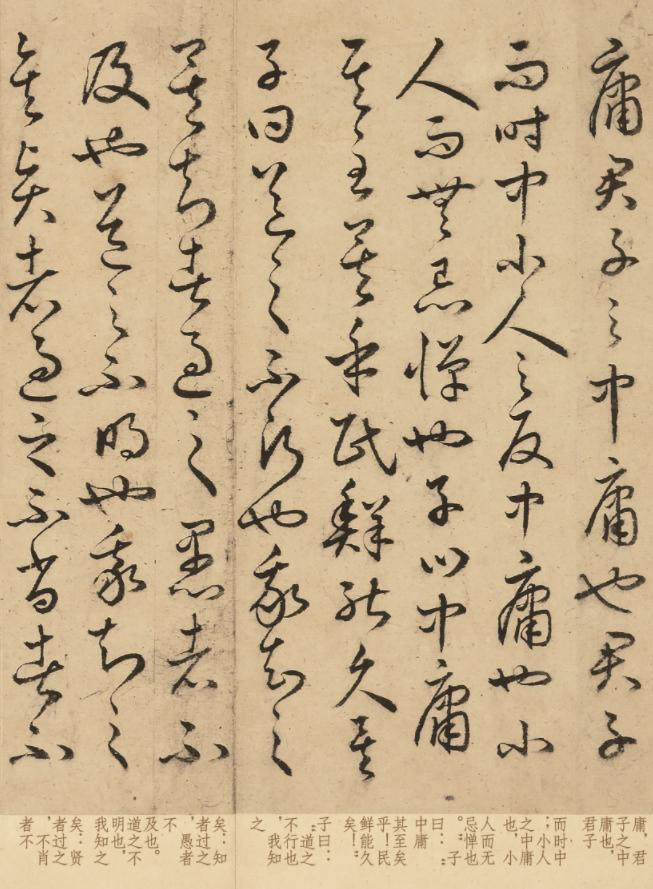 庸君子之中庸也君子
而时中小人之反中庸也小
人而無忌憚也子曰中庸
其至矣乎民鮮能久矣
子曰道之不行也我知之
矣知者過之愚者不
及也道之不明也我知之
矣賢者過之不肖者不
庸，君
子之中
庸也，
君子
而时中
；小人
之中庸
也，小
人而无
忌惮也
。”子
曰：“
中庸
其至矣
乎！民
鲜能久
矣！”
子曰：
“道之
不行也
，我知
之
矣：知
者过之
，愚者
不
及也。
道之不
明也，
我知之
矣：贤
者过之
，不肖
者不